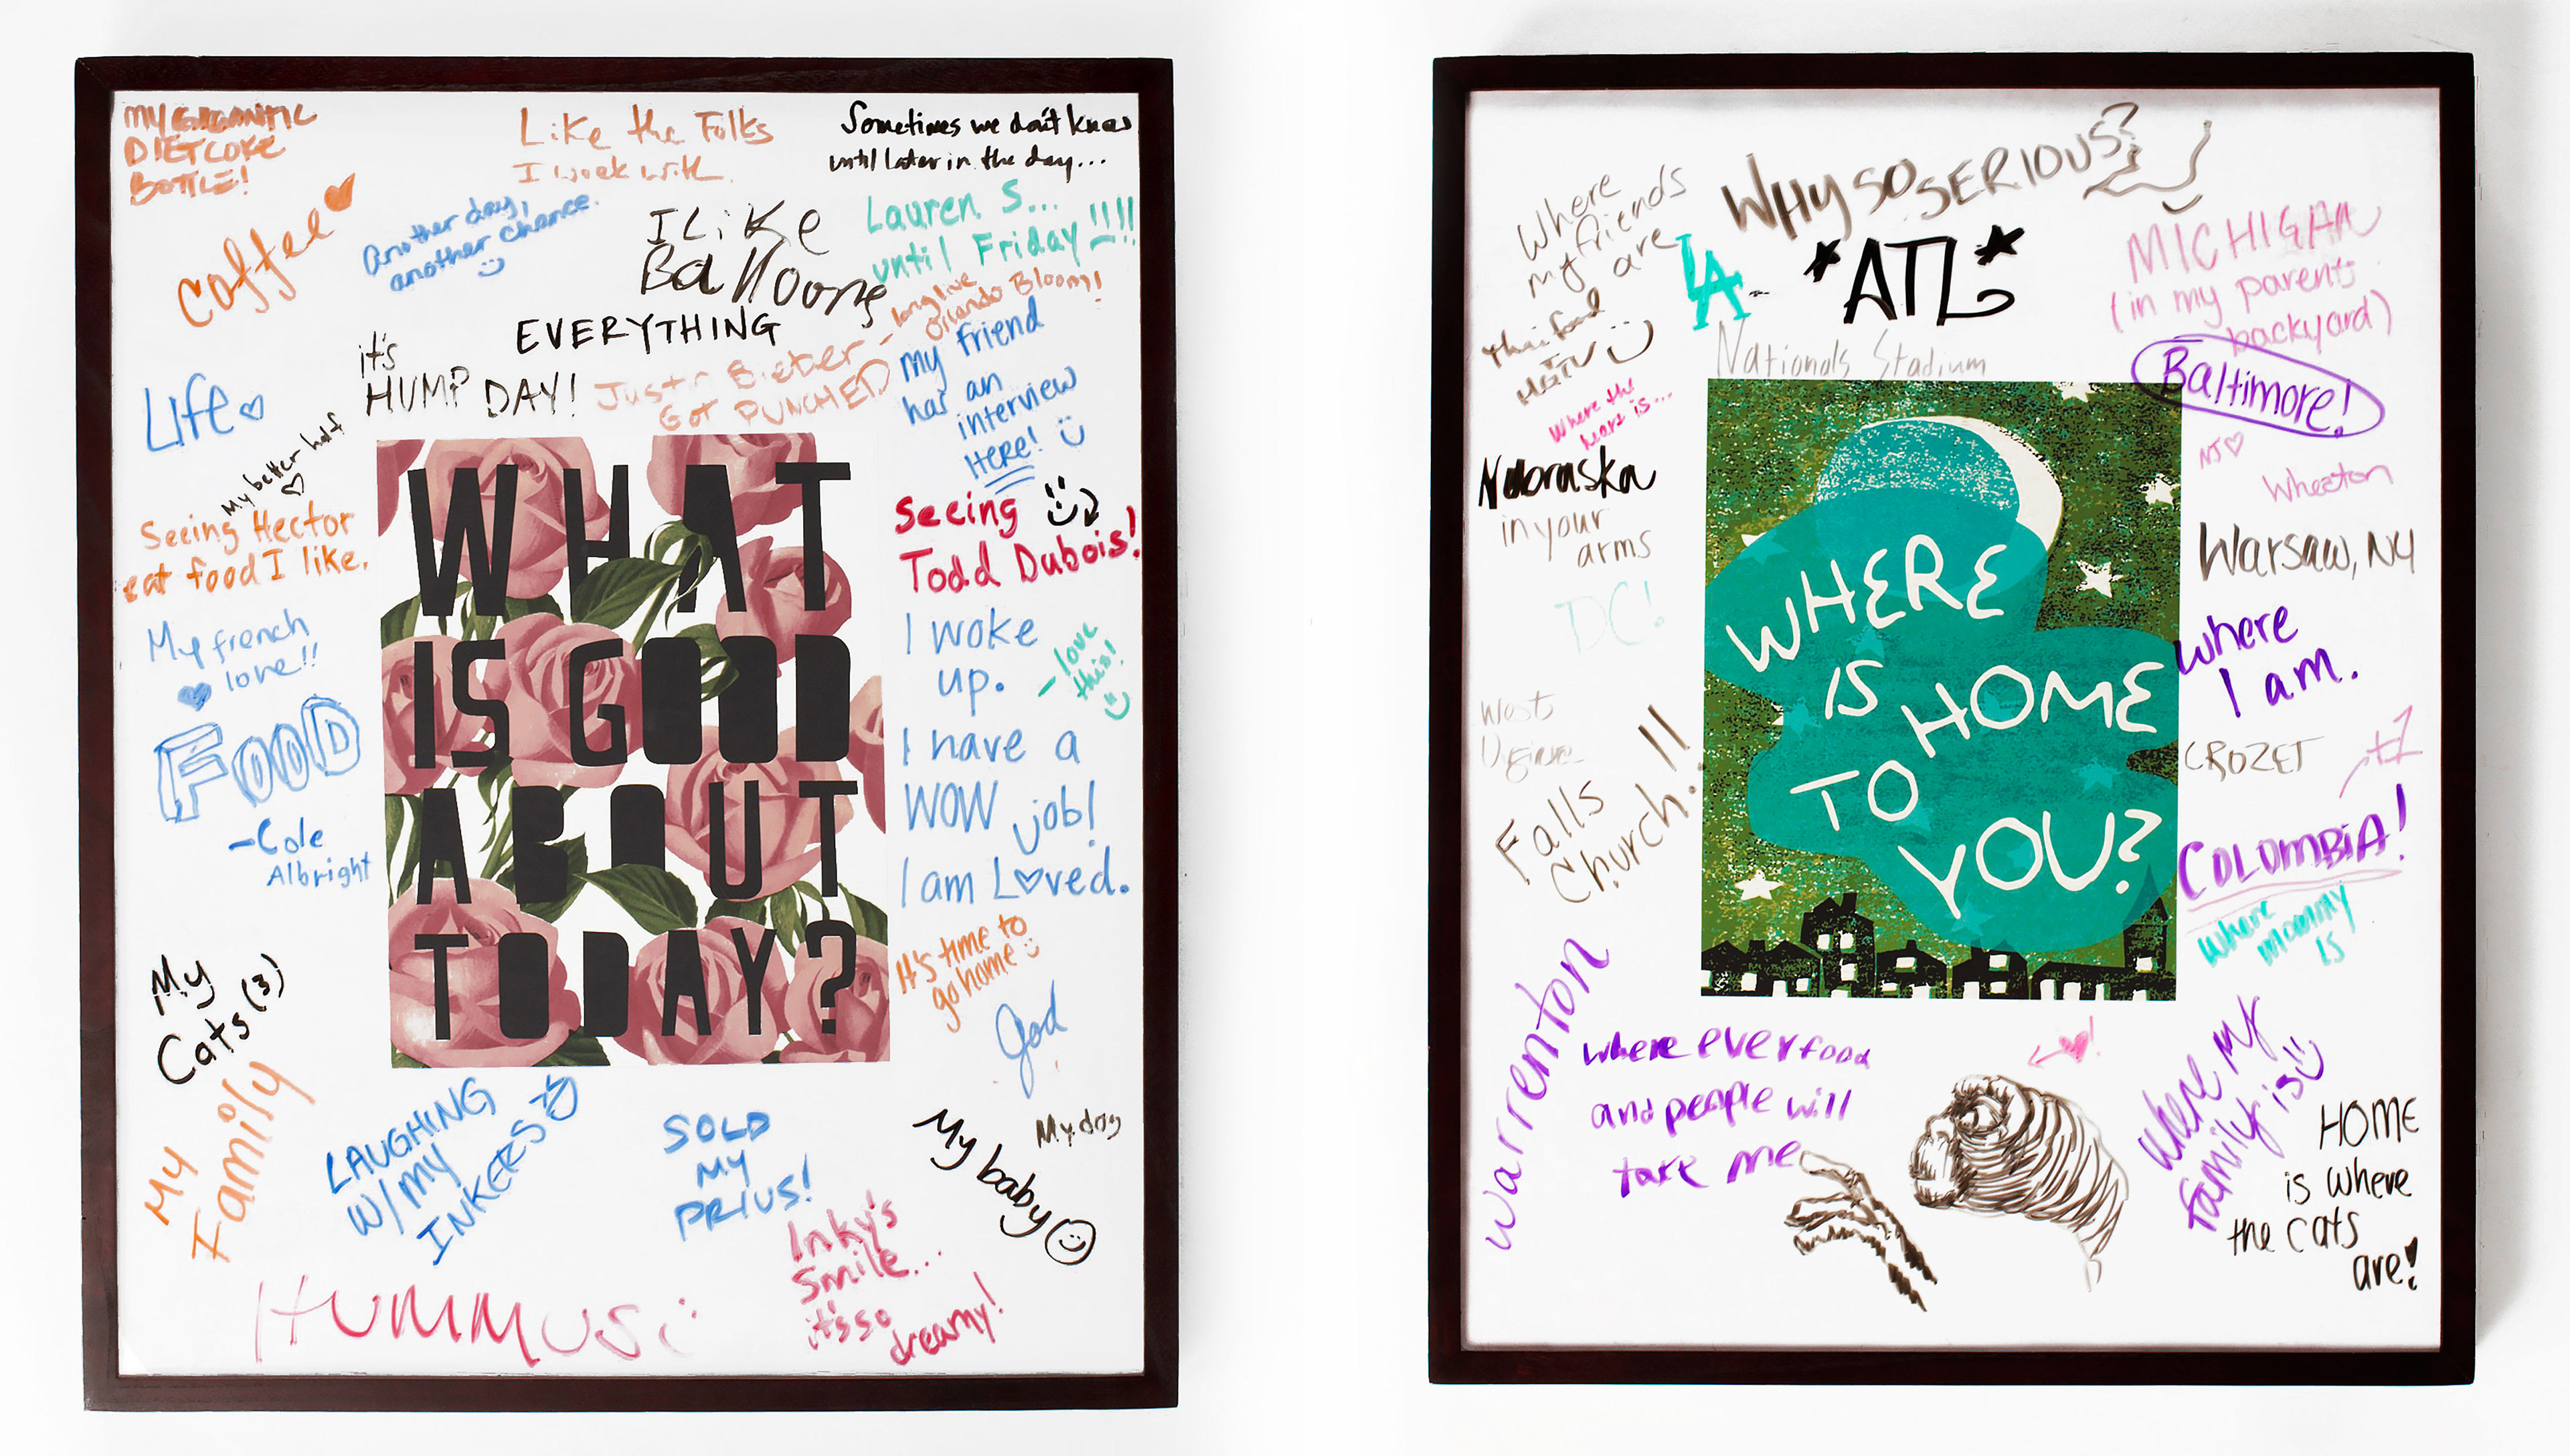 MY GIGANTIC
DIET COKE
BOTTLE!
Like the Folks
I work with.
Sometimes we don't know
until later in the day...
Coffee
Another day,
another chance.
I LIKE
Balloons
Lauren S...
until Friday!!!!
- long live
Orlando Bloom!
EVERYTHING
it's
HUMP DAY!
Justin Bieber
GOT PUNCHED
my friend
has an
interview
HERE!
Life
My better half
Seeing Hector
eat food I like.
My french
love!!
FOOD
-Cole
Albright
WHAT
IS GOOD
ABOUT
TODAY?
Seeing
Todd Dubois!
I woke
up.
- love
this!
I have a
WOW job!
I am Loved.
It's time to
go home
God
My
Cats (3)
My
Family
LAUGHING
W/ MY
INKERS
SOLD
MY
PRIUS!
My baby
My dog
Inky's
Smile...
it's so
dreamy!
HUMMUS
Where
my friends
are
WHY SO SERIOUS?
LA
*ATL*
MICHIGAN
(in my parents
backyard)
thai food
HGTV
Nationals Stadium
Baltimore!
Where the
heart is...
NJ
Wheaton
Nebraska
in your
arms
Warsaw, NY
DC!
where
I am.
West
Virginia
CROZET
#1
Falls
Church!!
COLOMBIA!
where
mommy
is
WHERE
IS HOME
TO
YOU?
Warrenton
where ever food
and people will
take me
where my
family is
HOME
is where
the cats
are!